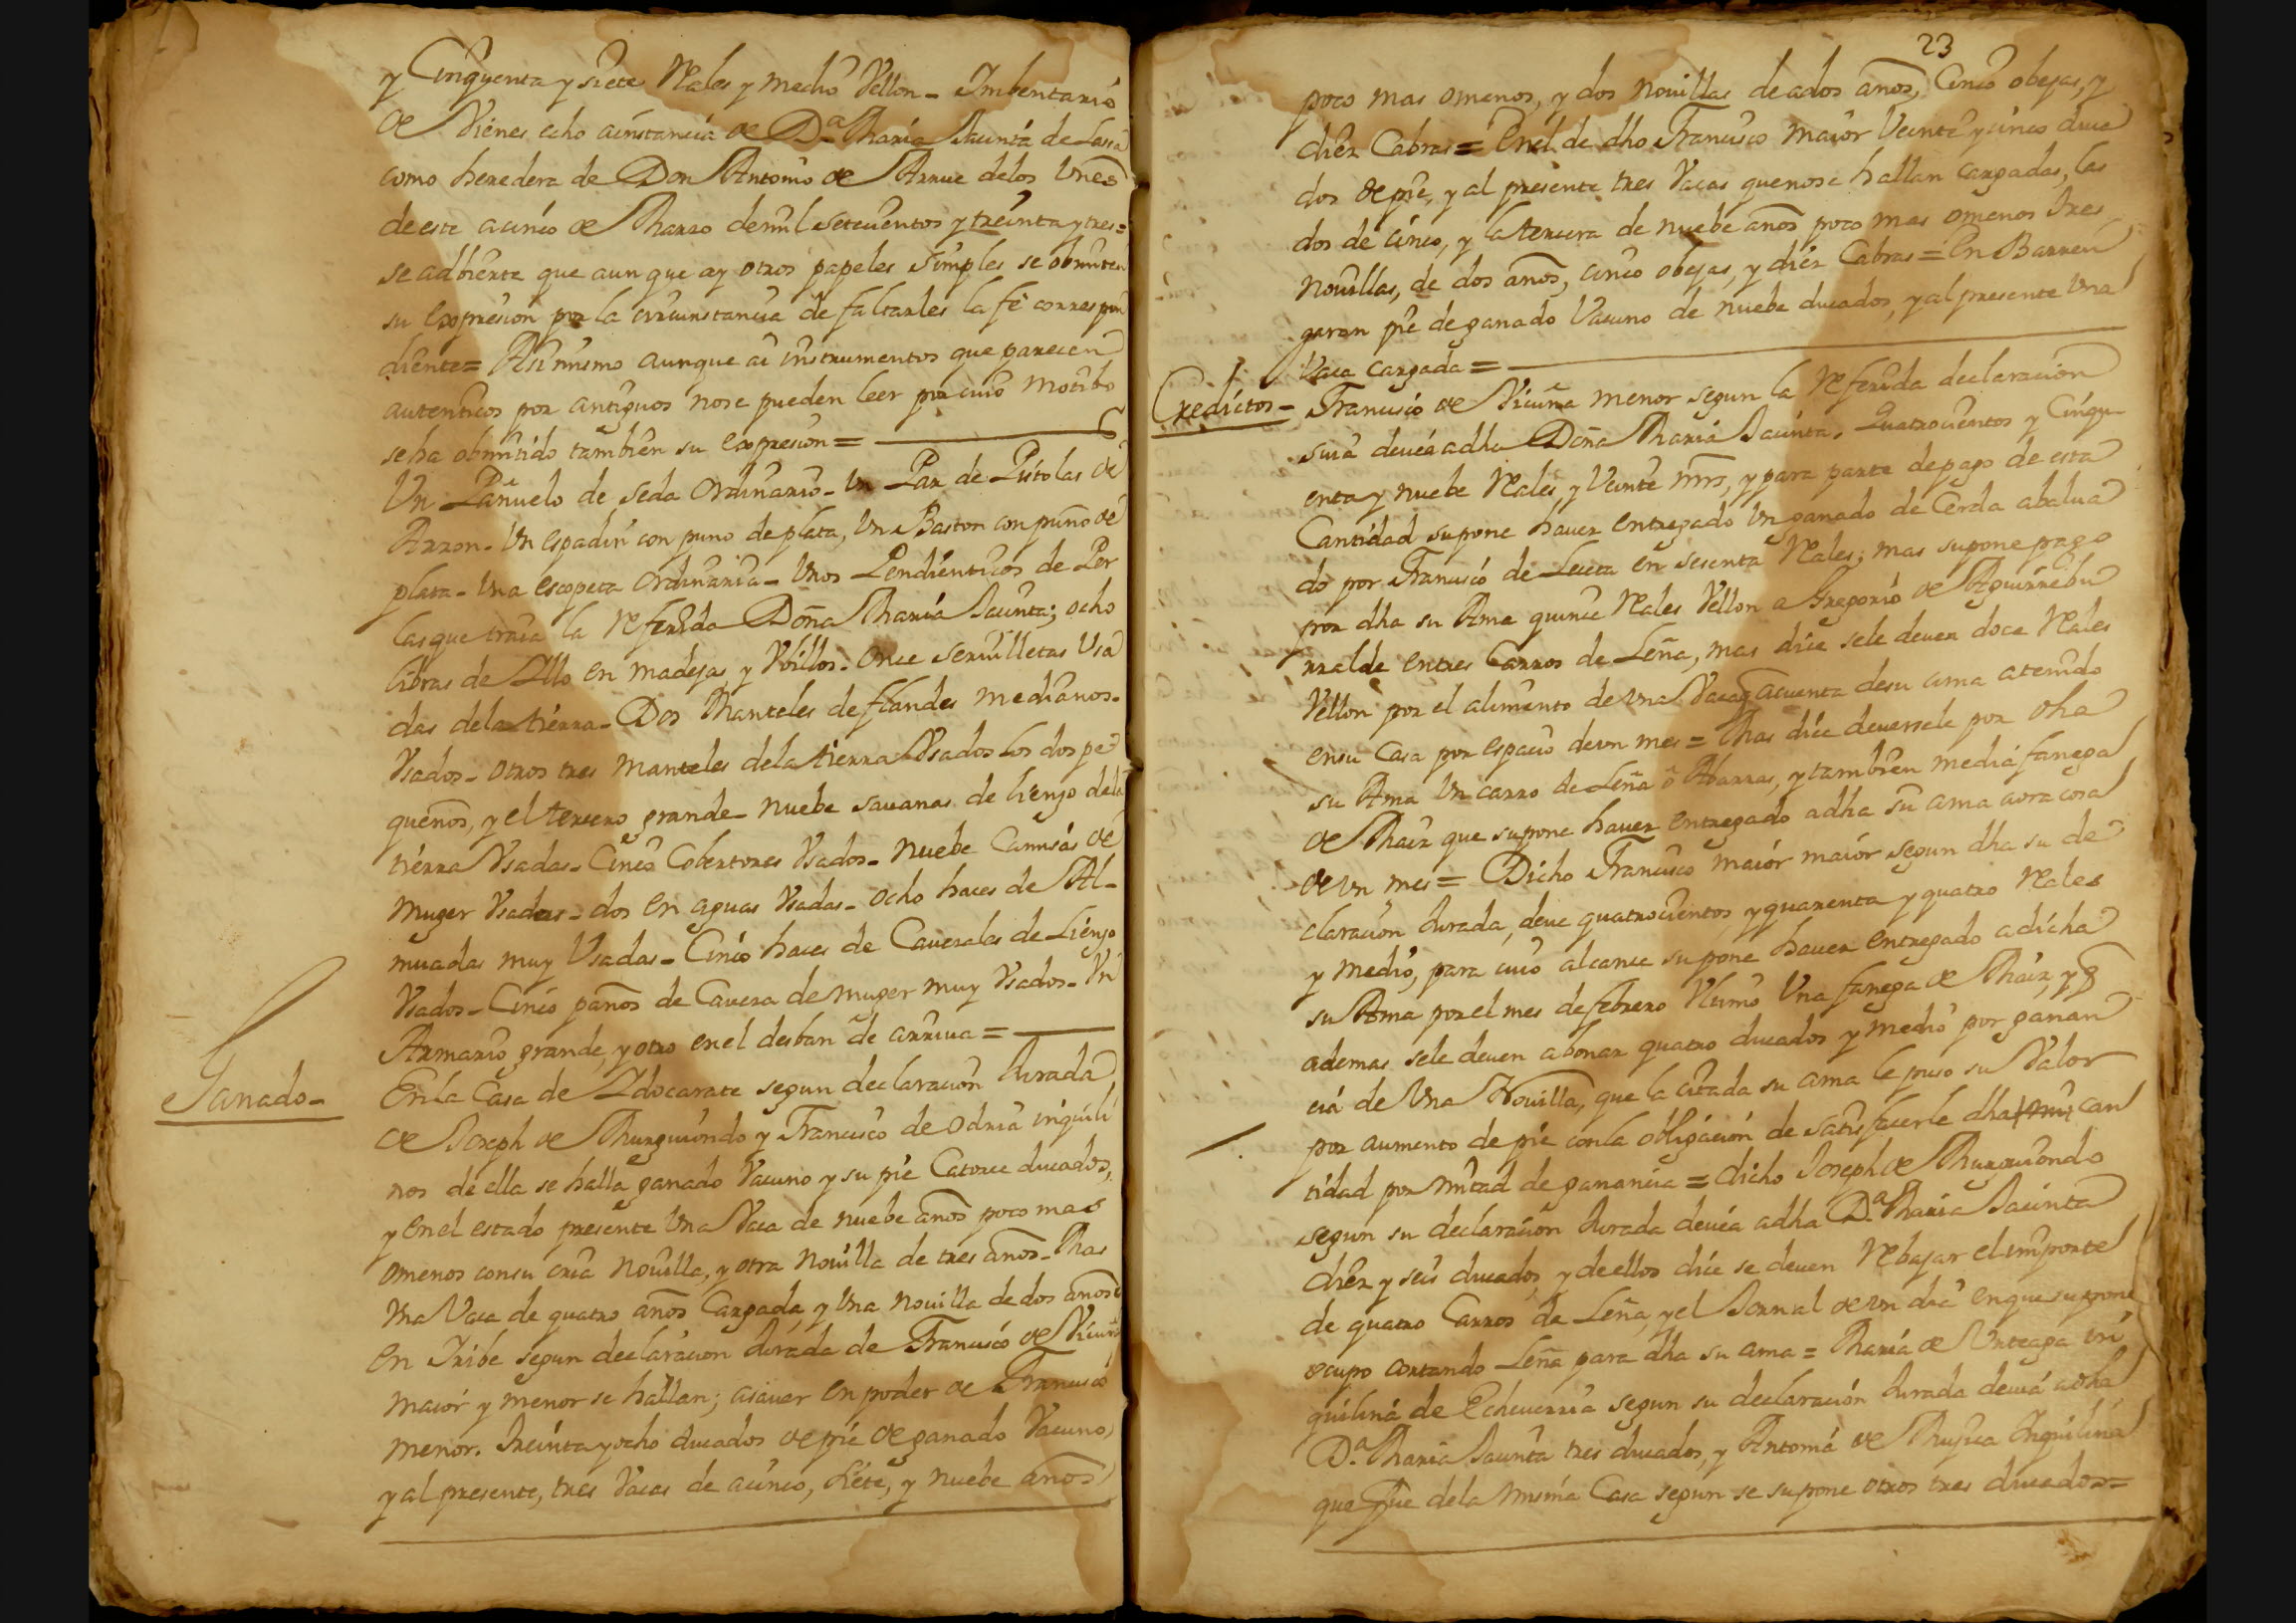 y Cinquenta y siete Rales y medio Vellon - Imbentario
de Vienes echo ainstancia de D.ª Maria Jacinta de Lassa
como heredera de Don Antonio de Arrue delos Vnes
de este acinco de Marzo demil setecientos y treinta y tres=
se adbierte que aun que ay otros papeles simples se obmiten
su expresion por la circunstancia de faltarles la fè correspon
diente= Asimismo aunque ai instrumentos que parecen
autenticos por antiguos nose pueden leer por cuio motibo
seha obmitido tambien su expresion=
Un Pañuelo de seda Ordinario - Un Par de Pistolas de
Arzon - Un espadin con puno de plata, Un Baston con puño de
plata - Una escopeta Ordinaria - Unos Pendienticos de Per
las que traia la referida Doña Maria Jacinta; ocho
libras de Illo en madejas y Vbillos - Once seruilletas Vsa
das dela tierra - Dos Manteles de flandes medianos
Vsados - otros tres manteles dela tierra Vsados los dos pe
queños, y el tercero grande - nuebe sauanas de lienzo dela
tierra Vsadas - Cinco Cobertores Vsados - nuebe Camisas de
muger Vsadas - dos en aguas Vsadas - ocho haces de Al-
muadas muy Vsadas - Cinco haces de Cauezales de Lienzo
Vsados - Cinco paños de Cauera de muger muy Vsados - Vn
Armario grande, y otro enel desban de arriua =
Ganado -
En la Casa de Idocarate segun declaracion Jurada
de Joseph de Murguiondo y Francisco de Odria inquili
nos de ella se halla ganado Vacuno y su pie Catorce ducados,
y en el estado presente Una Vaca de nuebe años poco mas
omenos consu cria nouilla, y otra nouilla de tres años - Mas
Vna Vaca de quatro años Cargada, y Vna nouilla de dos años
en Iribe segun declaracion Jurada de Francisco de Vicuña
maior y menor se hallan; asauer en poder de Francisco
menor. Treinta y ocho ducados de pie de ganado Vacuno,
y al presente, tres Vacas de acinco, siete, y nuebe años
23
poco mas omenos, y dos nouillas de ados años, Cinco obejas, y
diez Cabras = En el de dho Francisco maior Veinte y cinco duca
dos de pie, y al presente tres Vacas que nose hallan cargadas, las
dos de cinco, y la tercera de nuebe años poco mas omenos tres
nouillas, de dos años, cinco obejas, y diez Cabras = En Barren
garan pie de ganado Vacuno de nuebe ducados, y al presente Una
Vaca cargada =
Credictos - Francisco de Vicuña menor segun la referida declaracion
suia deuia adha Doña Maria Jacinta. Quatrocientos y Cinqu-
enta y nuebe Rales, y Veinte mrs, y para parte depago de esta
Cantidad supone hauer entregado Un ganado de Cerda abalua
do por Francisco de Leceta en sesenta Rales; mas supone pago
por dha su Ama quince Rales Vellon a Gregorio de Aguirrebu
rralde entres Carros de Leña, mas dice sele deuen doce Rales
Vellon por el alimento de Una Vaca q acuenta desu ama atenido
ensu Casa por espacio deun mes = Mas dice deuersele por dha
su Ama Un carro de Leña ò Abarras, y tambien media fanega
de Maiz que supone hauer entregado adha su ama aora cosa
de vn mes = Dicho Francisco maior maior segun dha su de
claracion Jurada, deue quatrocientos, y quarenta y quatro Rales
y medio, para cuio alcance supone hauer entregado adicha
su Ama por el mes de febrero Vltimo Una fanega de Maiz, y q
ademas sele deuen abonar quatro ducados y medio por ganan
cia de Vna Nouilla, que la citada su ama le puso su Valor
por aumento de pie conla obligacion de satisfacerle dha can
tidad por mitad de ganancia = dicho Joseph de Murguiondo
segun su declaracion Jurada deuia adha D.ª Maria Jacinta
diez y seis ducados, y de ellos dice se deuen Rebajar el importe
de quatro Carros de Leña, y el Jornal de vn dia en que supone
ocupo cortando Leña para dha su ama = Maria de Vrteaga in
quilina de Echeuerria segun su declaracion Jurada deuia adha
D.ª Maria Jacinta tres ducados, y Antonia de Mujica Inquilina
que fue dela misma Casa segun se supone otros tres ducados=